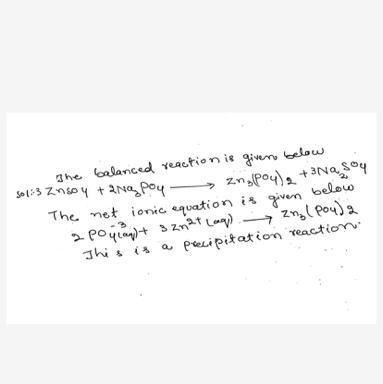 The balanced reaction is given below
sol:- 3 ZnSO4 + 2Na3PO4 ⟶ Zn3(PO4)2 + 3Na2SO4
The net ionic equation is given below
2 PO4^-3(aq) + 3 Zn^2+(aq) ⟶ Zn3(PO4)2
This is a precipitation reaction.